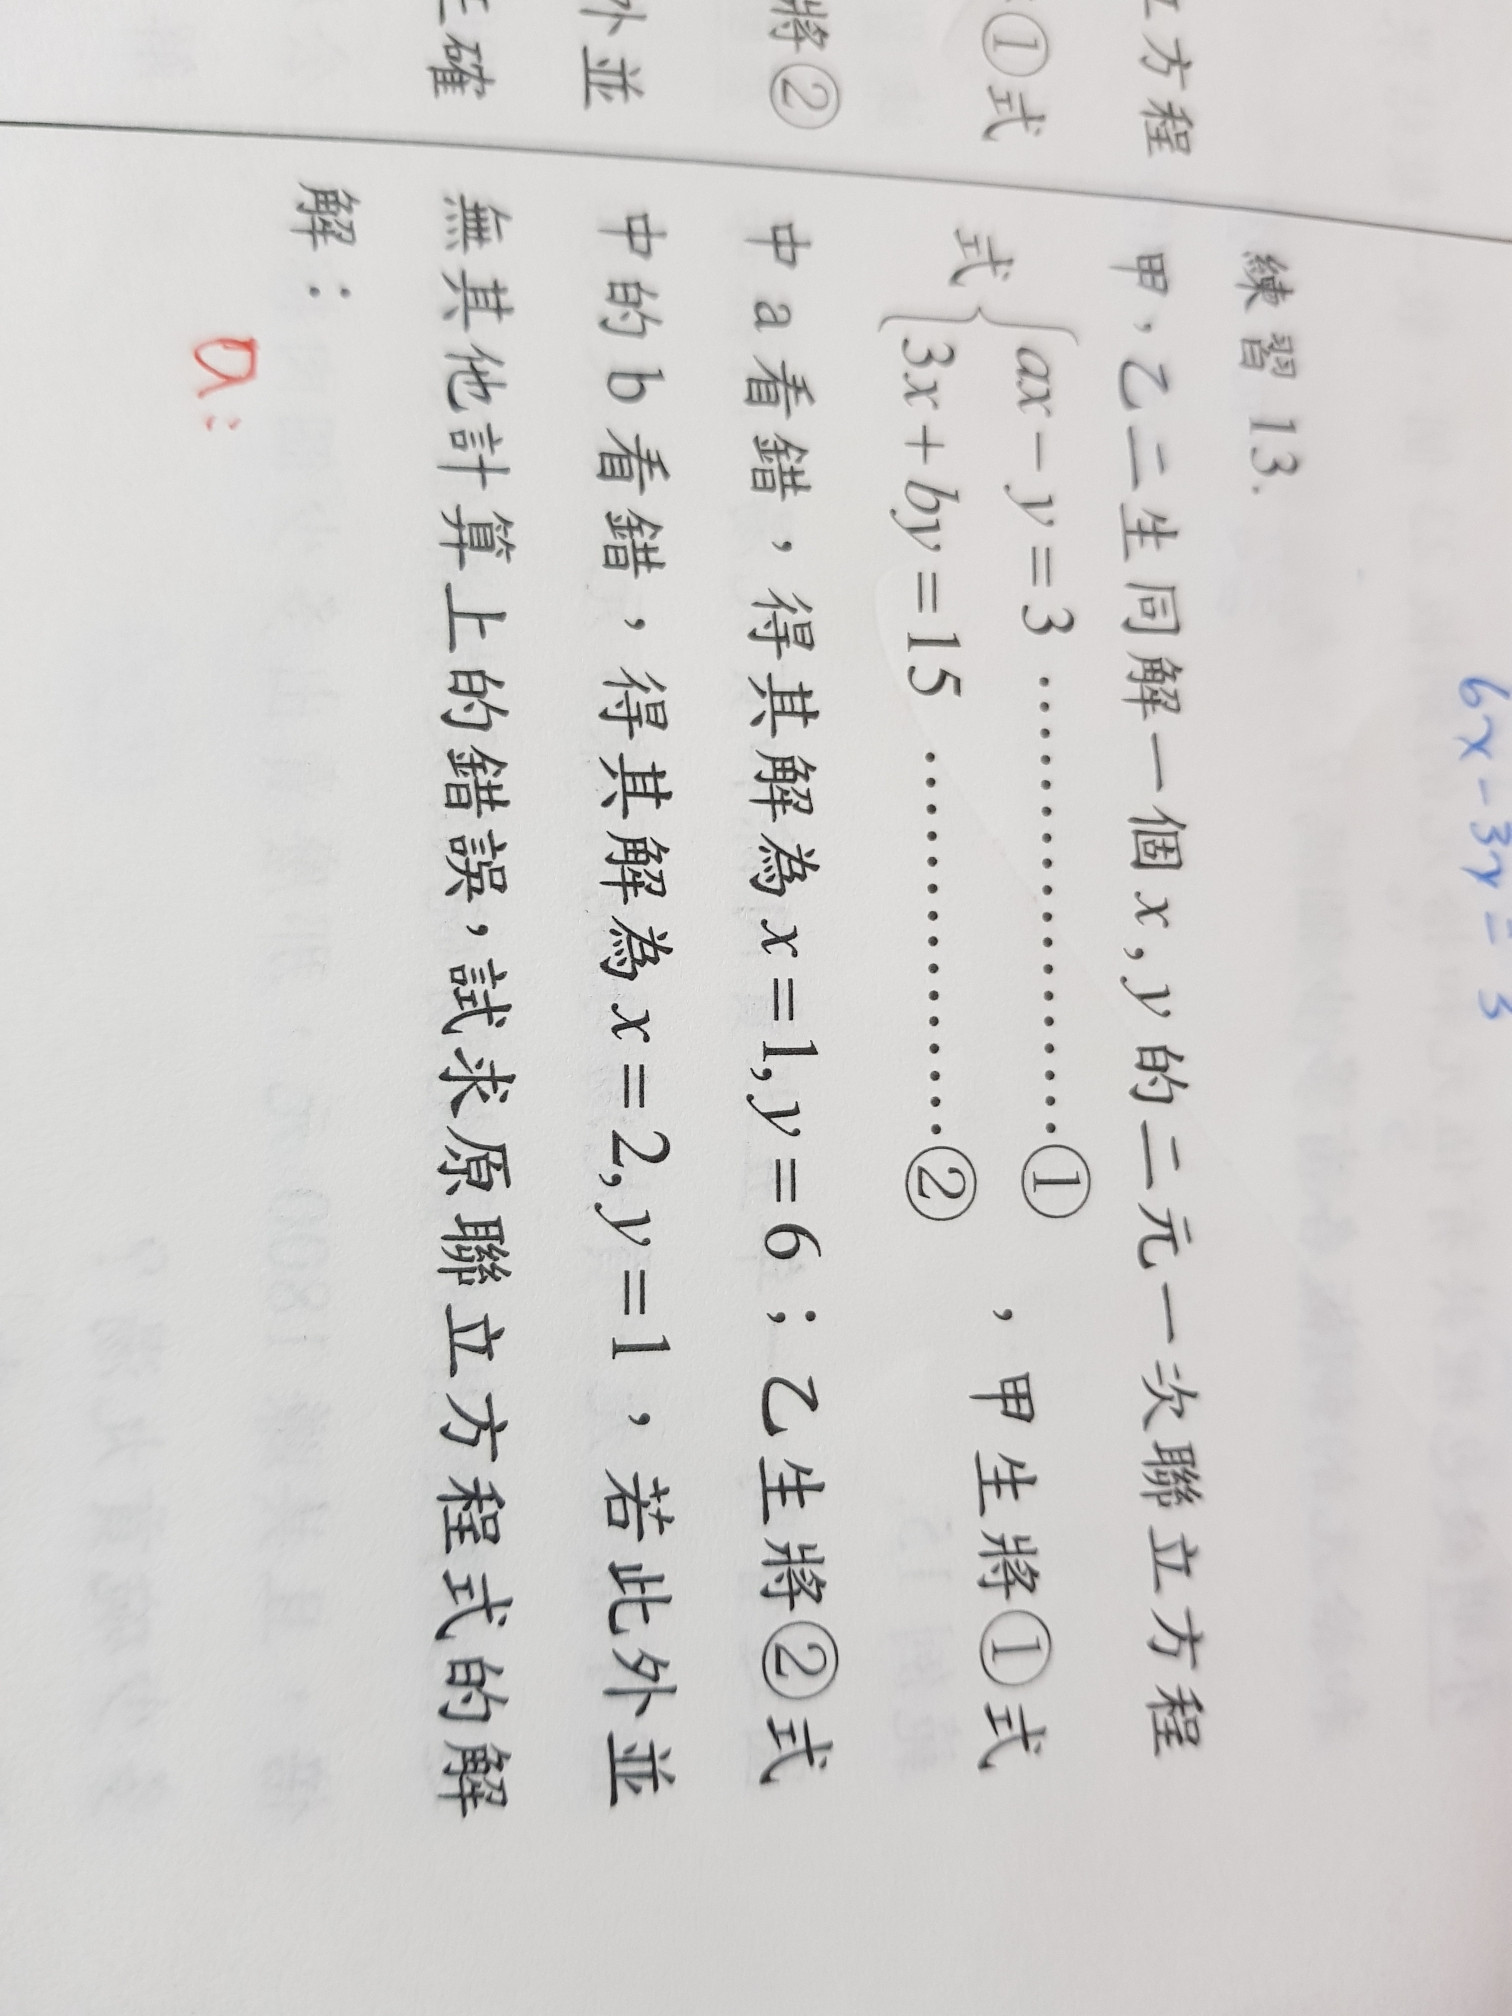 立方程
①式
將②
外並
正確
6x-3y=3
練習 13.
甲,乙二生同解一個 x,y 的二元一次聯立方程
式{ax-y=3 ………………①
3x+by=15 ………………② ,甲生將①式
中 a 看錯,得其解為 x=1,y=6;乙生將②式
中的 b 看錯,得其解為 x=2,y=1,若此外並
無其他計算上的錯誤,試求原聯立方程式的解
解:
a: